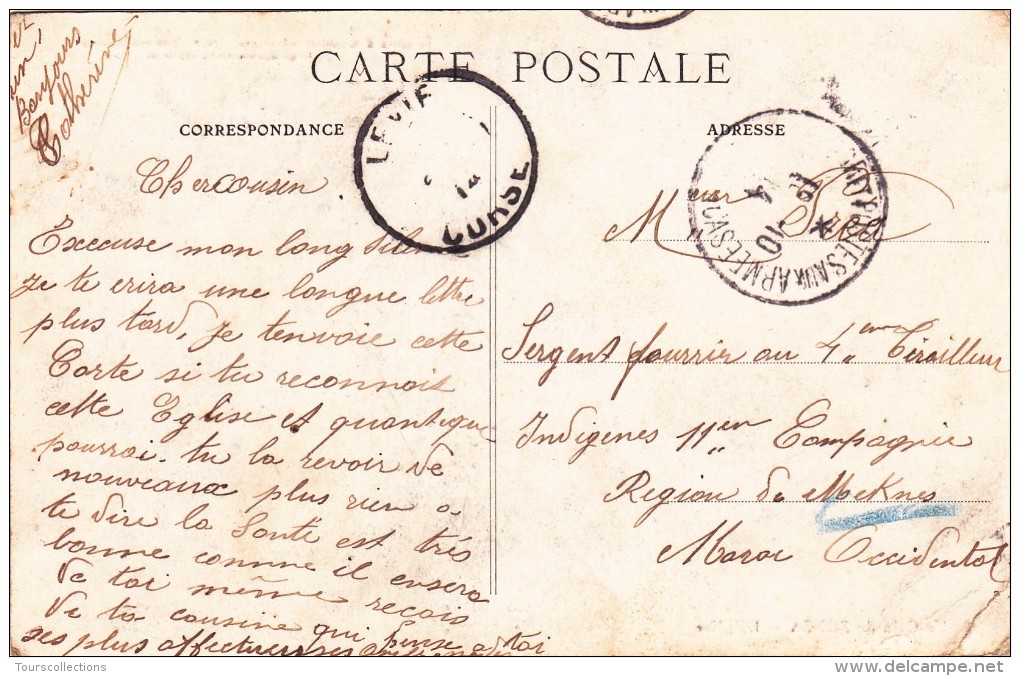 CARTE POSTALE
CORRESPONDANCE
ADRESSE
Bonjours
Catherine
LEVIE
14
CORSE
Cher cousin
Exceuse mon long Silen
Je te erira une longue lettre
plus tard, je tenvoie cette
Carte si tu reconnois
cette Eglise et quantque
pourrai tu la revoir de
nouveaux plus rien a
te dire la Santé est très
bonne comme il ensera
de toi même reçois
de ta cousine qui pense a toi
ses plus affectueuses
Mieur
10
Sergent fourrier au 4em Tirailleur
Indigenes 11en Compagnie
Region de Meknes
Maroc Occidental
Tourscollections